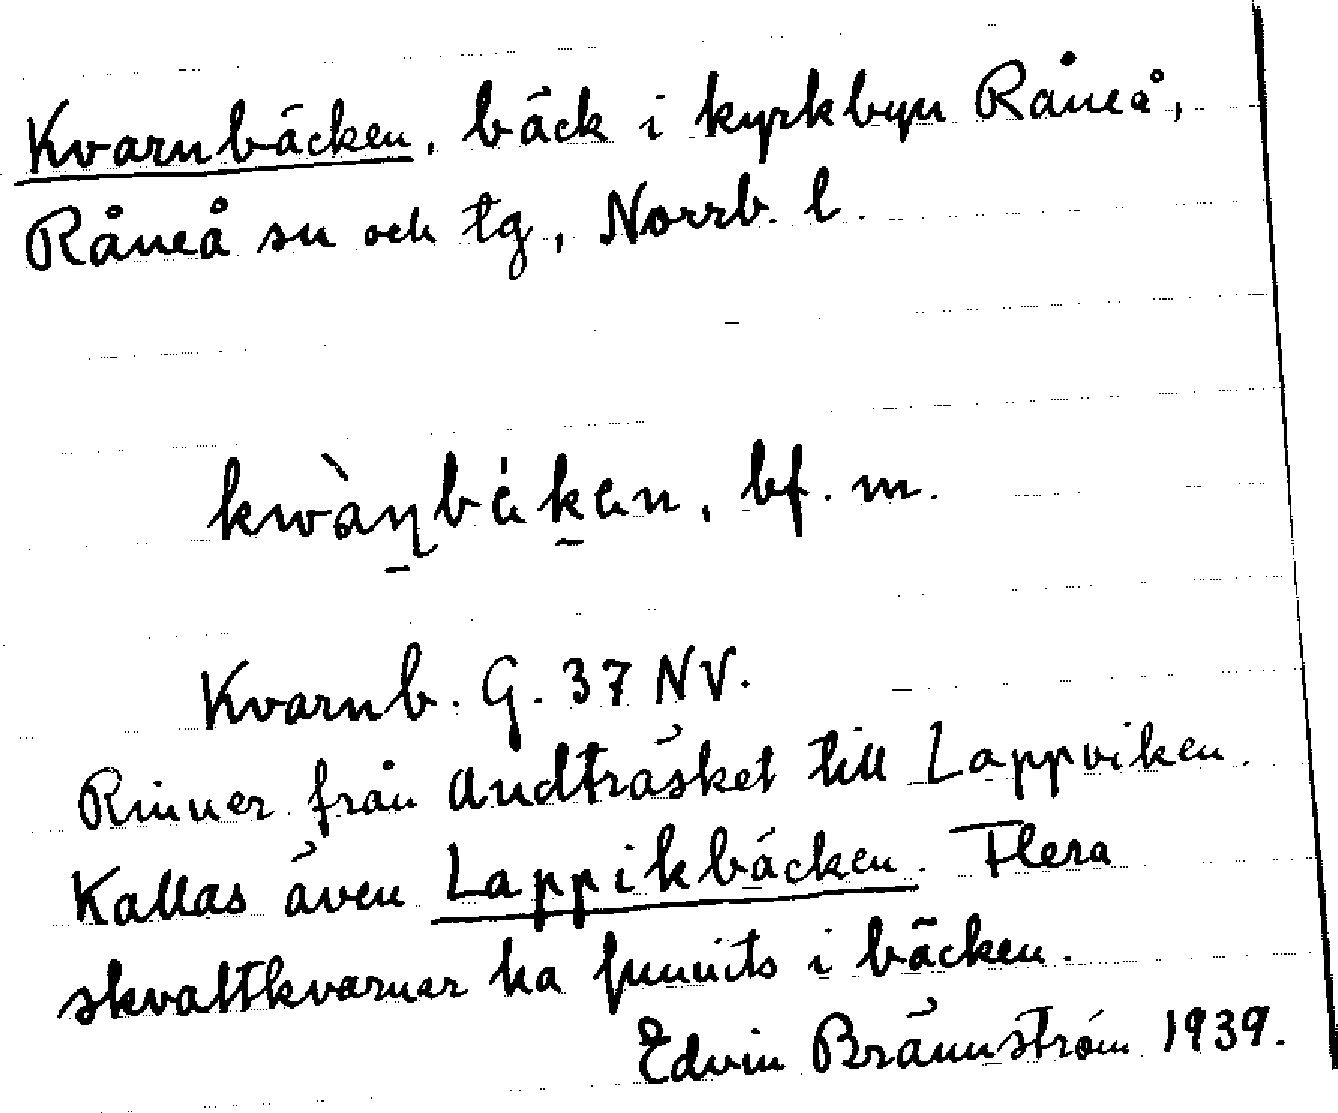 Kvarnbäcken, bäck i kyrkbyn Råneå,
Råneå sn och tg, Norrb. l.
bf. m.
Kvarnb. G. 37 NV.
Rinner från Andträsket till Lappviken.
Kallas även Lappikbäcken. Flera
skvaltkvarnar ha funnits i bäcken.
Edvin Brännström 1939.